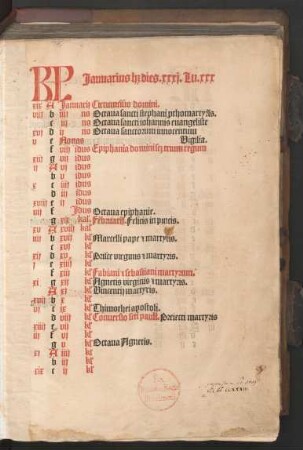 KL Januarius hȝ dies .xxxj. Lu. xxx
A Januarij Circumcisio domini.
viij b iiij no Octaua sancti stephani prothomartyris
c iij no Octaua sancti iohannis euangeliste
d ij no Octaua sanctorum innocentium
e Nonas Vigilia.
f viij idus Epiphania domini et trium regum
xiij g vij idus
ij A vj idus
b v idus
x c iiij idus
d iij idus
e ij idus
f Idus Octaua epiphanie.
g kal. Februarii. Felicis in pincis.
xv A xviij kal
iiij b xvij kl Marcelli pape et martyris
c xvj kl
d xv kl Prisce virginis et martyris
e xiiij kl
f xiij kl Fabiani et sebastiani martyrum.
g xij kl Agnetis virginis et martyris
A xj kl Vincentij martyris
b x kl
c ix kl Thimothei apostoli.
d viij kl Conuersio sci pauli. Proiecti martyris
e vij kl
f vj kl
g v kl Octaua Agnetis.
A iiij kl
b iij kl
xix c ij kl